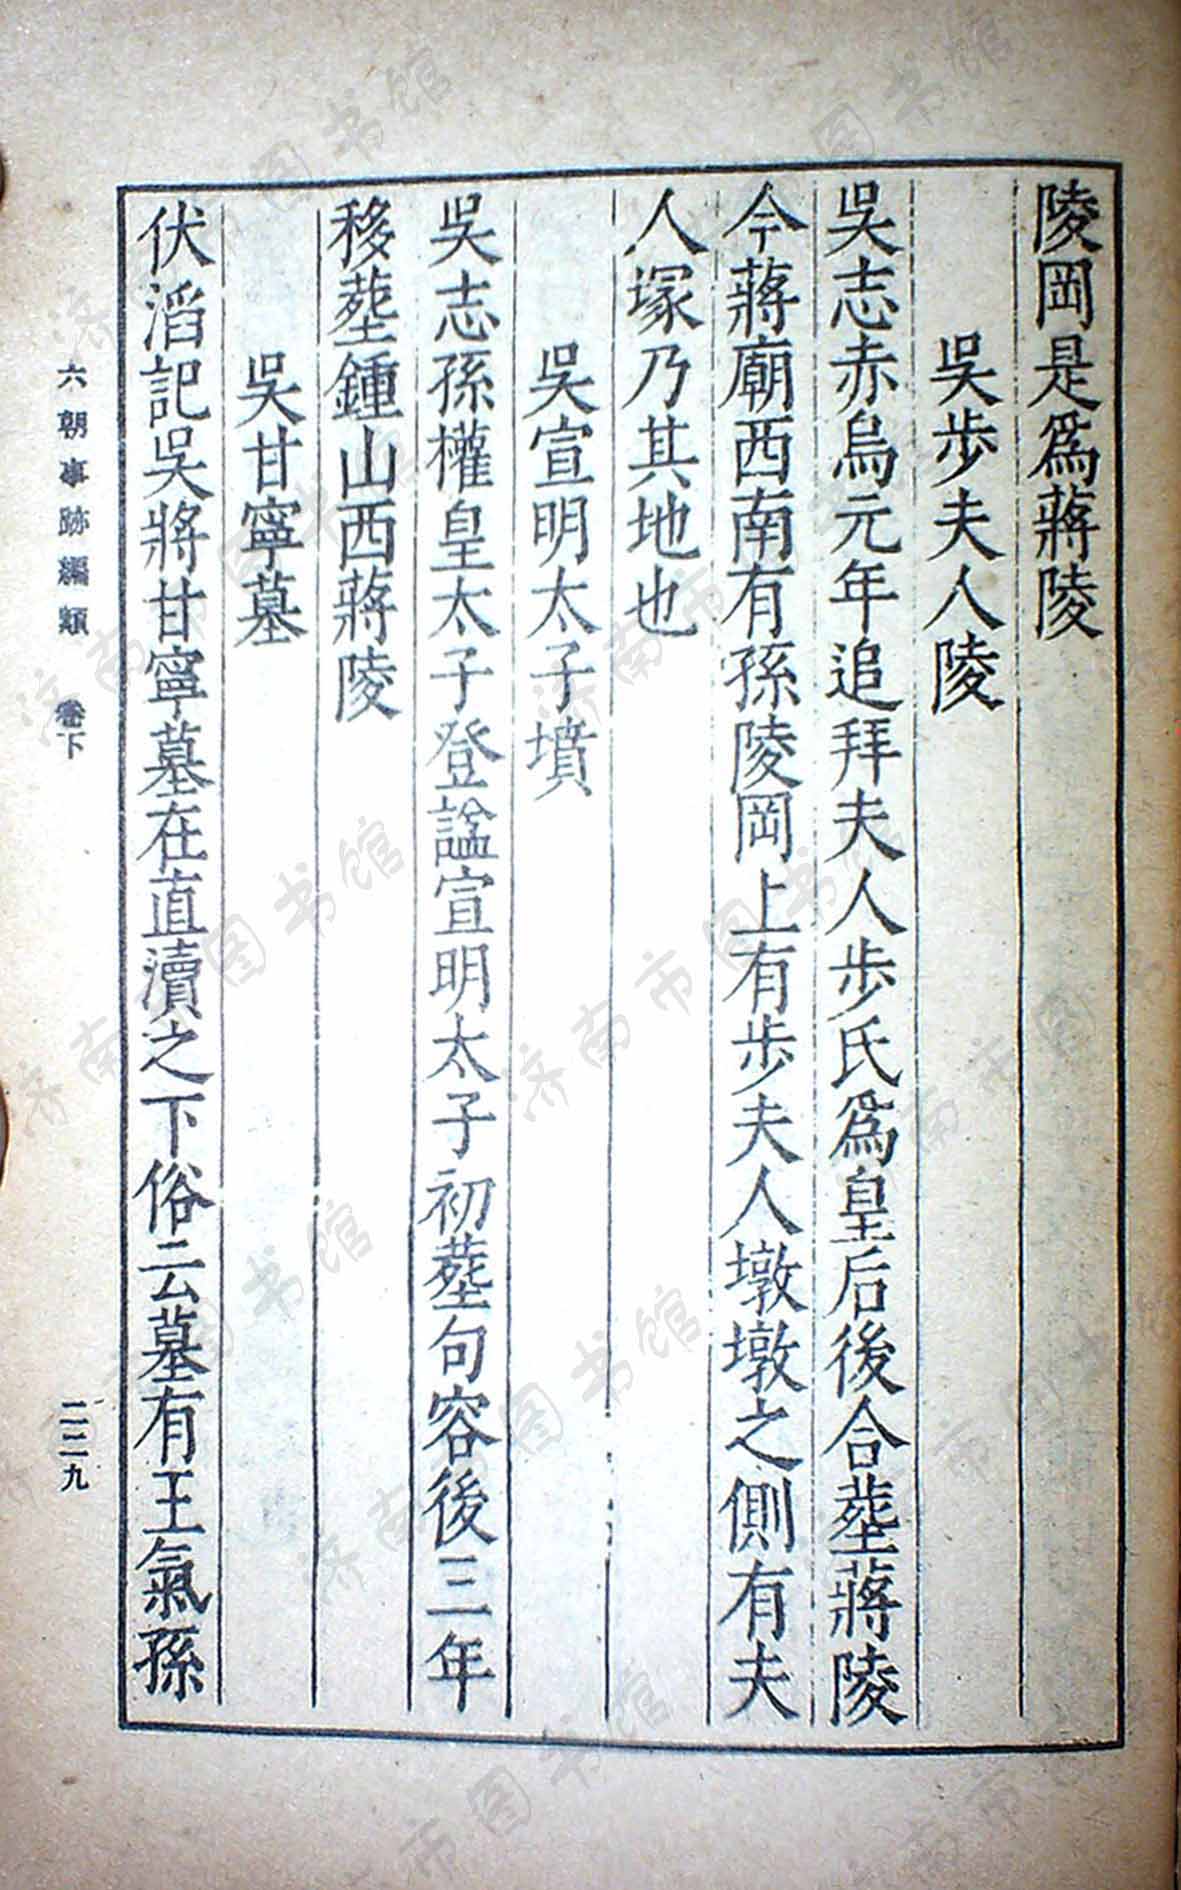 陵岡是爲蔣陵
吳步夫人陵
吳志赤烏元年追拜夫人步氏爲皇后後合塟蔣陵
今蔣廟西南有孫陵岡上有步夫人墩墩之側有夫
人塚乃其地也
吳宣明太子墳
吳志孫權皇太子登諡宣明太子初塟句容後三年
移塟鍾山西蔣陵
吳甘寧墓
伏滔記吳將甘寧墓在直瀆之下俗云墓有王氣孫
六朝事跡編類 卷下
二二九
济南市图书馆